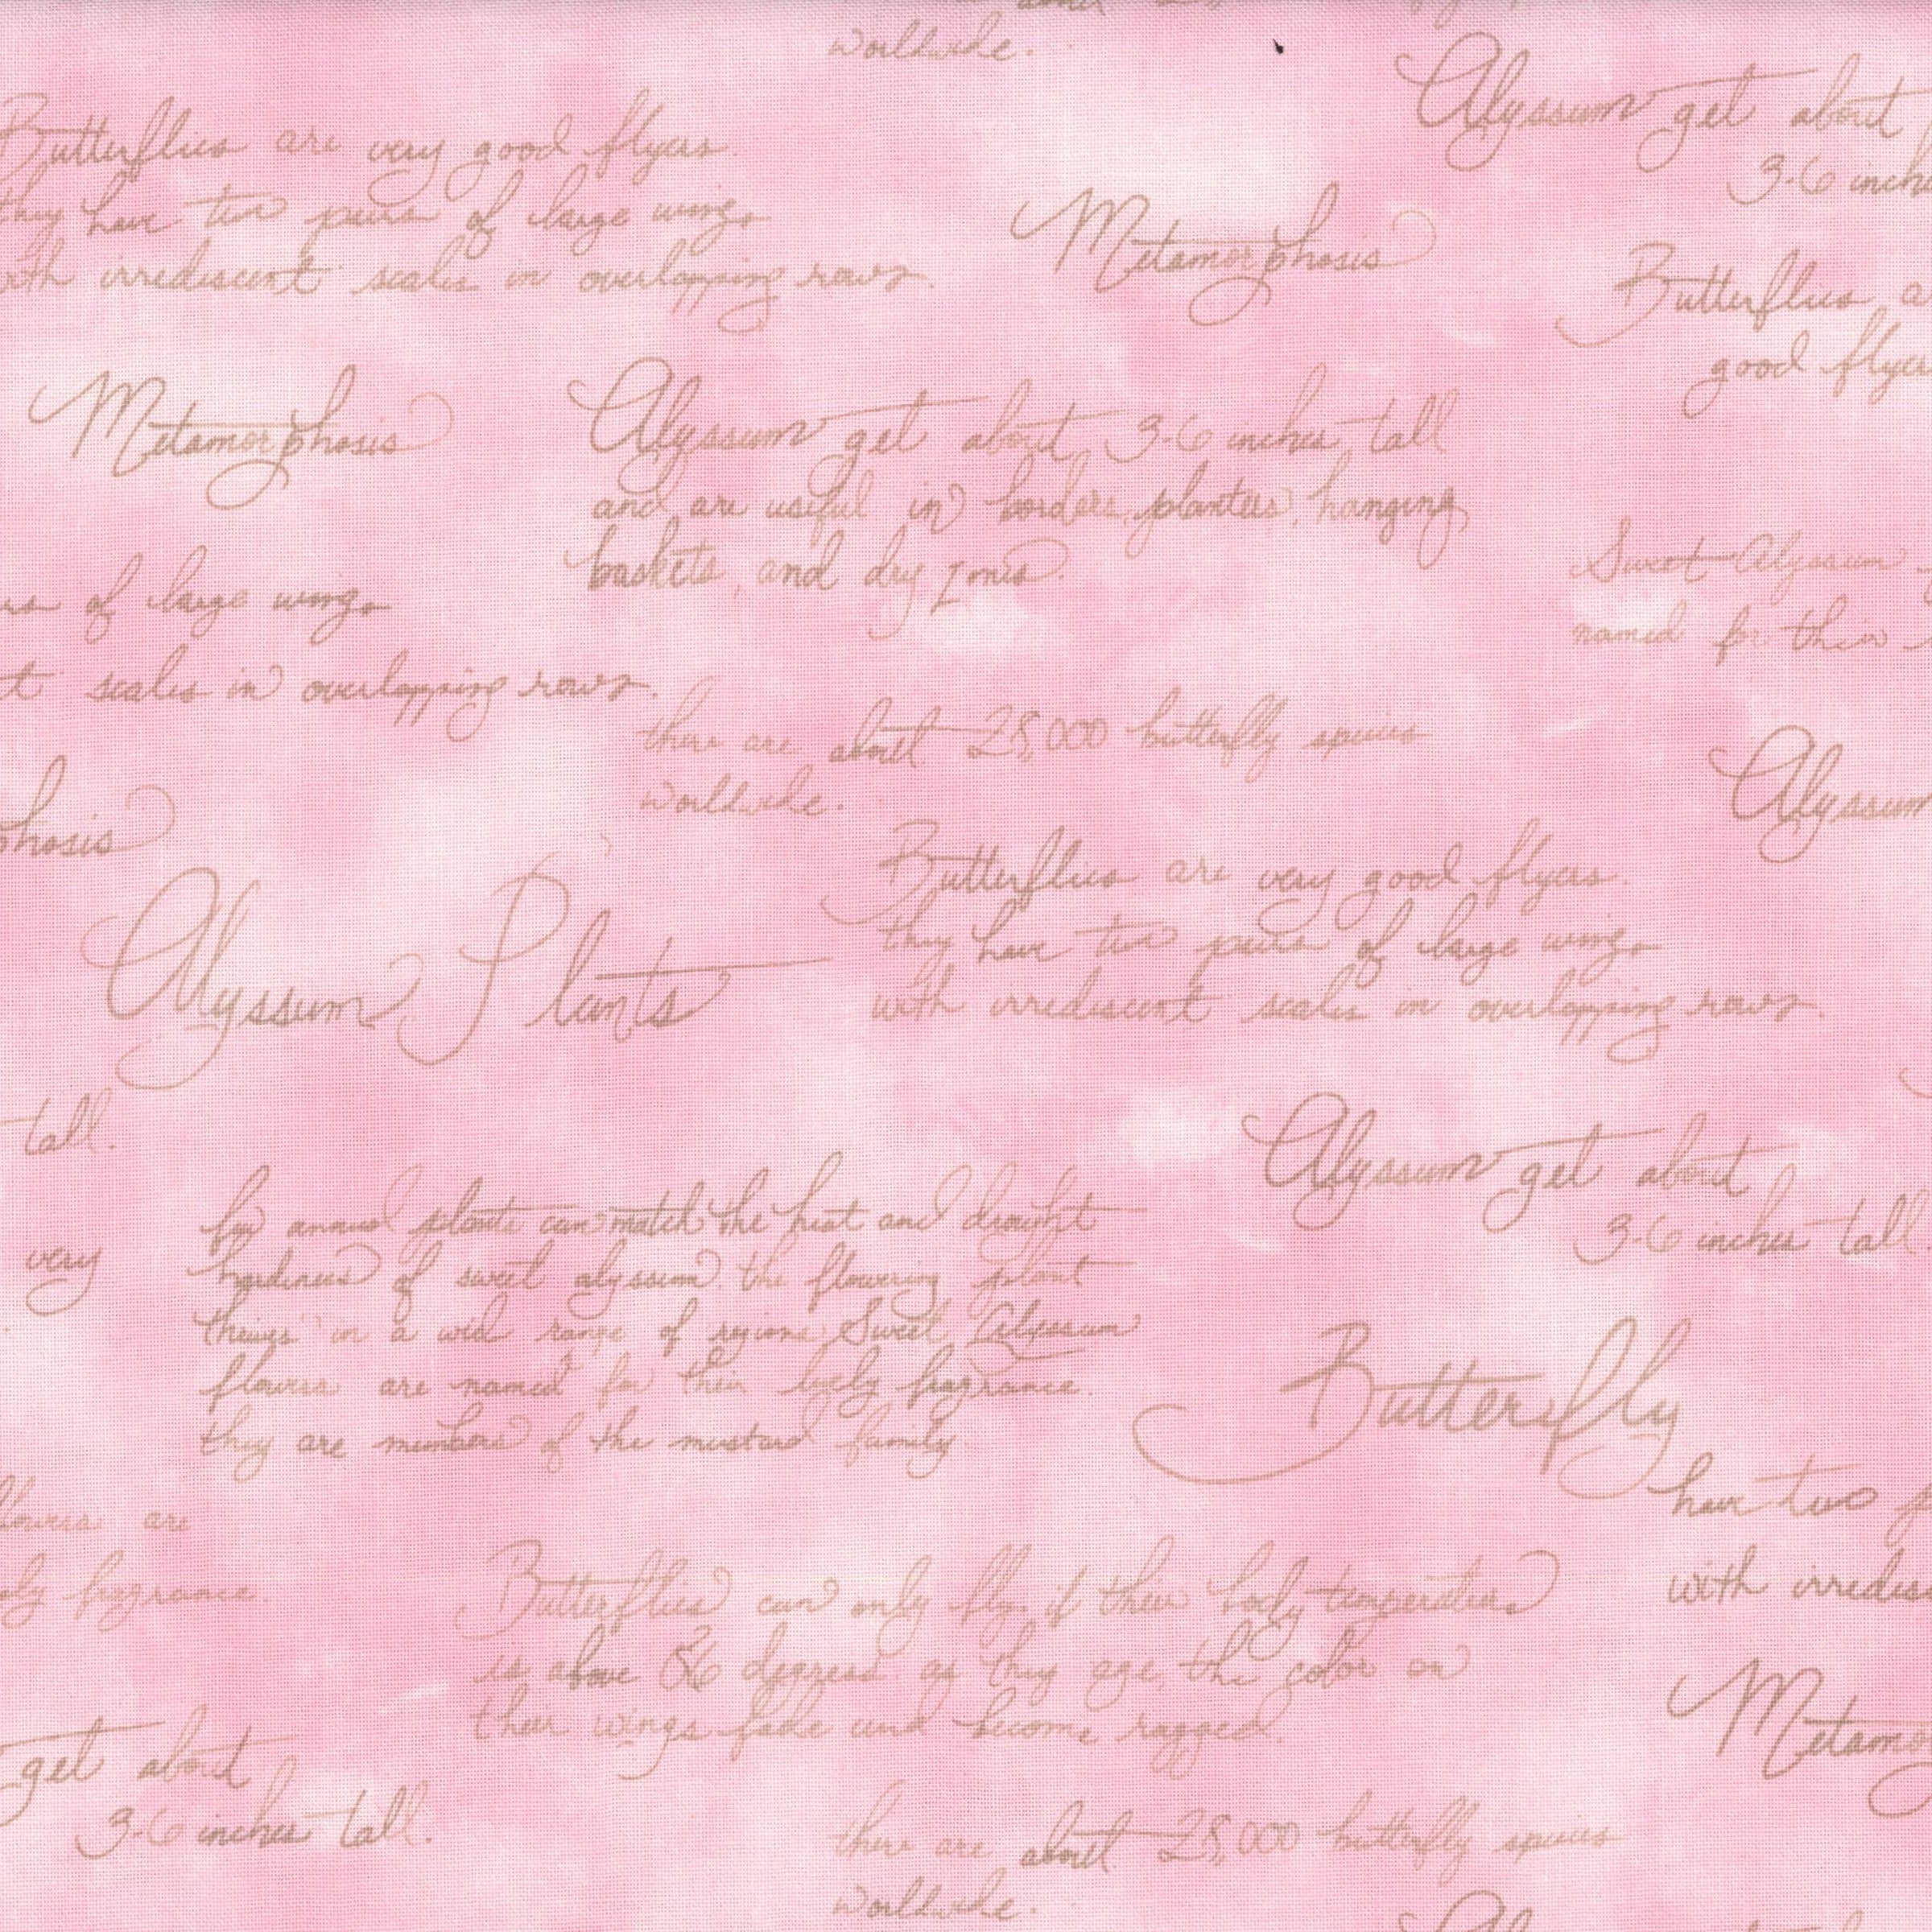 worldwide.
Alyssum get about
3-6 inch
Butterflies are very good flyers.
they have two pairs of large wings
with irrediscent scales in overlapping rows.
Metamorphosis
Butterflies a
good flyer
Metamorphosis
Alyssum get about 3-6 inches tall
and are useful in borders, planters, hanging
baskets, and dry zones.
Sweet Alyssum
named for their
of large wings
t scales in overlapping rows.
there are about 28,000 butterfly species
worldwide.
Alyssum
phosis
Butterflies are very good flyers.
they have two pairs of large wings
with irrediscent scales in overlapping rows.
Alyssum Plants
tall.
Alyssum get about
3-6 inches tall.
very
few annual plants can match the heat and drought
hardiness of sweet alyssum. the flowering plant
thrives in a wid range of regions Sweet Alyssum
flowers are named for their lovely fragrance.
they are members of the mustard family
Butterfly
have two p
with irredis
flowers are
ely fragrance.
Butterflies can only fly if their body temperature
is above 86 degrees. as they age, the color on
their wings fade and become ragged.
Metamo
get about
3-6 inches tall.
there are about 28,000 butterfly species
worldwide.